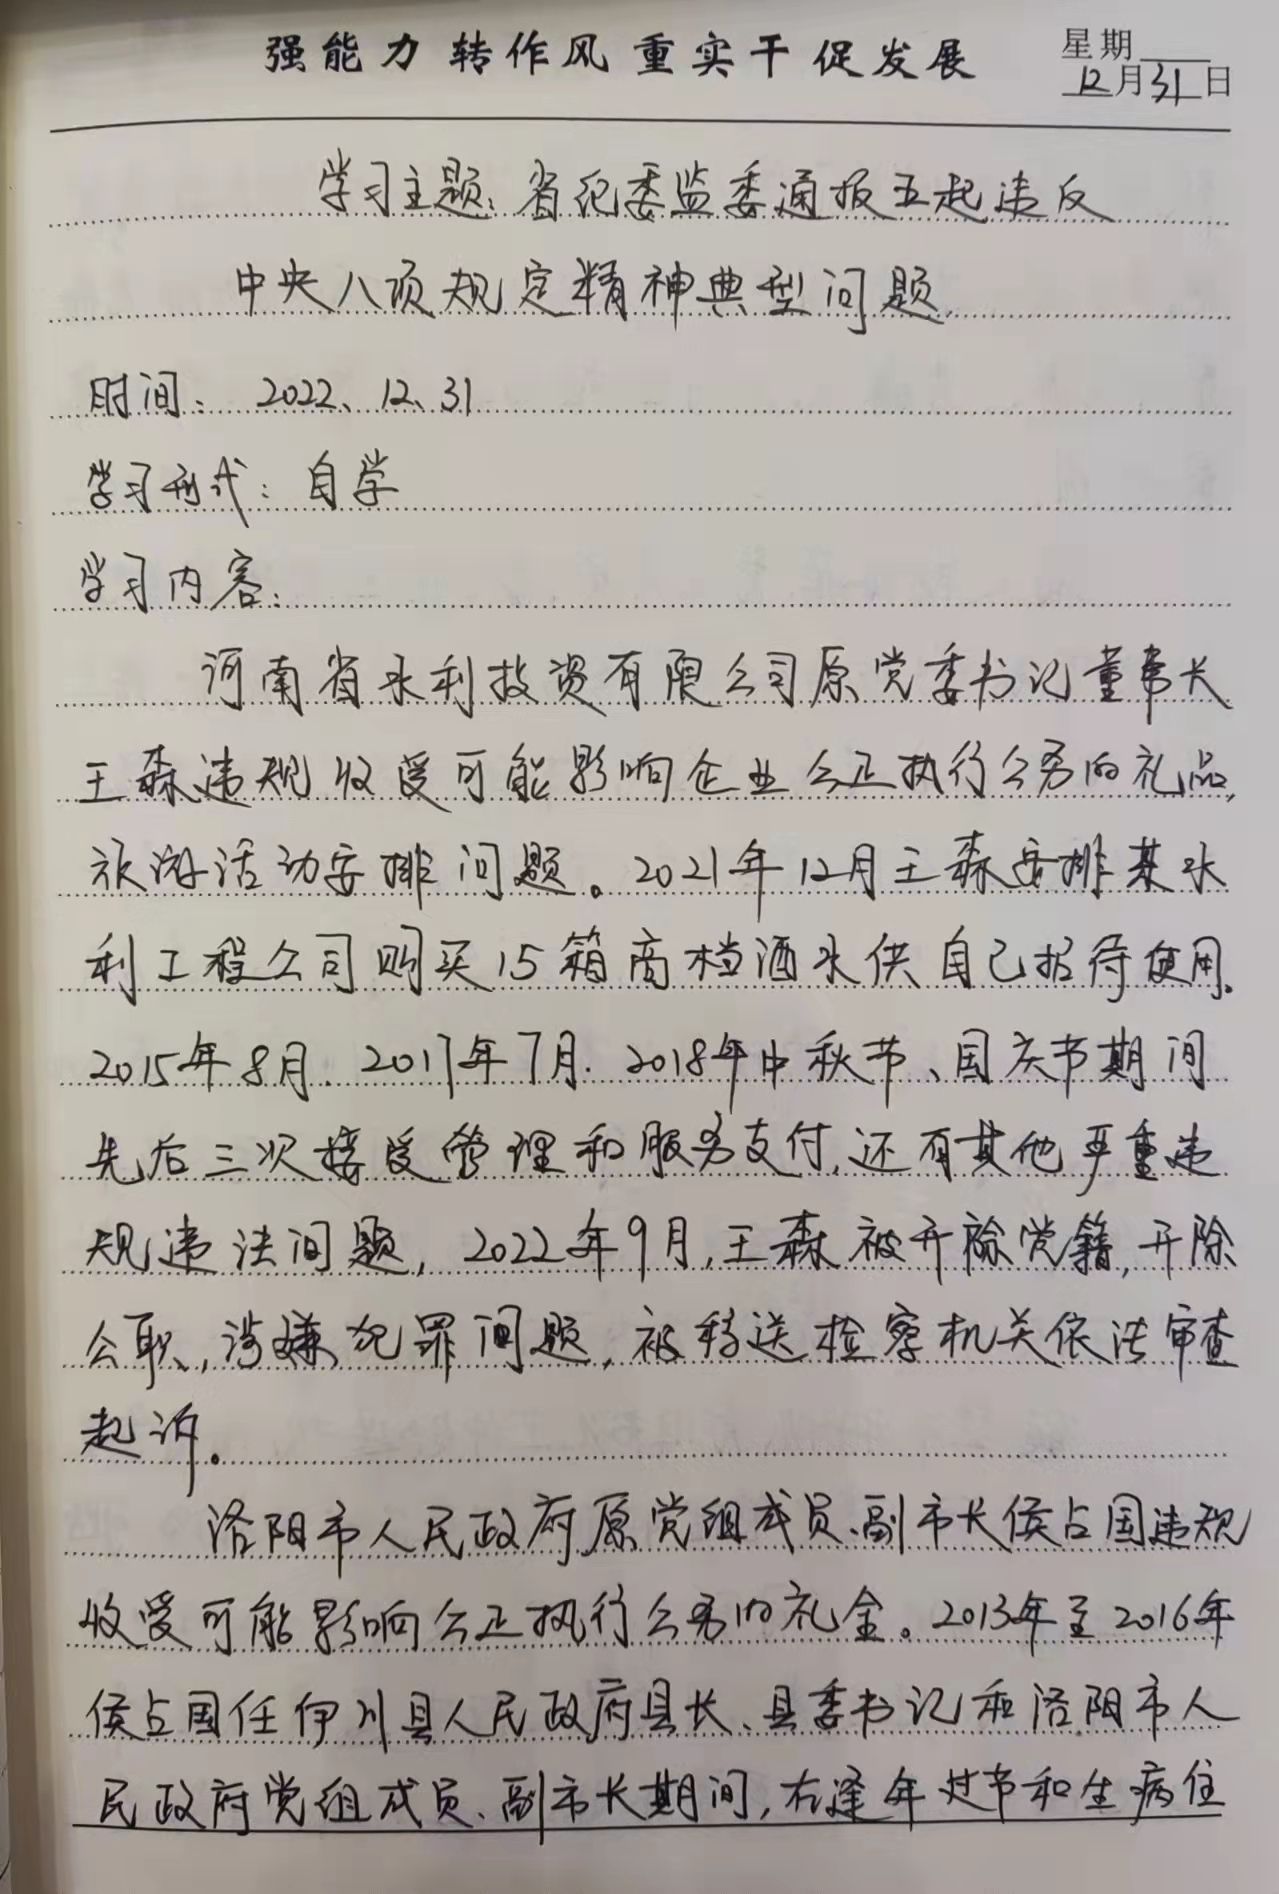 强能力 转作风 重实干 促发展
星期
12月31日
学习主题：省纪委监委通报五起违反
中央八项规定精神典型问题.
时间：2022、12、31
学习形式：自学
学习内容：
河南省水利投资有限公司原党委书记董事长
王森违规收受可能影响企业公正执行公务的礼品,
旅游活动安排问题。2021年12月王森安排某水
利工程公司购买15箱高档酒水供自己招待使用.
2015年8月.2017年7月.2018年中秋节、国庆节期间
先后三次接受管理和服务支付,还有其他严重违
规违法问题,2022年9月,王森被开除党籍,开除
公职,涉嫌犯罪问题,被移送检察机关依法审查
起诉.
洛阳市人民政府原党组成员、副市长侯占国违规
收受可能影响公正执行公务的礼金。2013年至2016年
侯占国任伊川县人民政府县长、县委书记和洛阳市人
民政府党组成员、副市长期间,在逢年过节和生病住